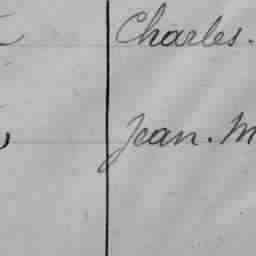 Charles.
Jean. M